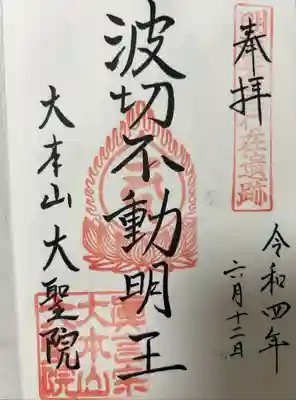 奉拝
令和四年
六月十二日
波切不動明王
大本山大聖院
真言宗
大本山
大聖院